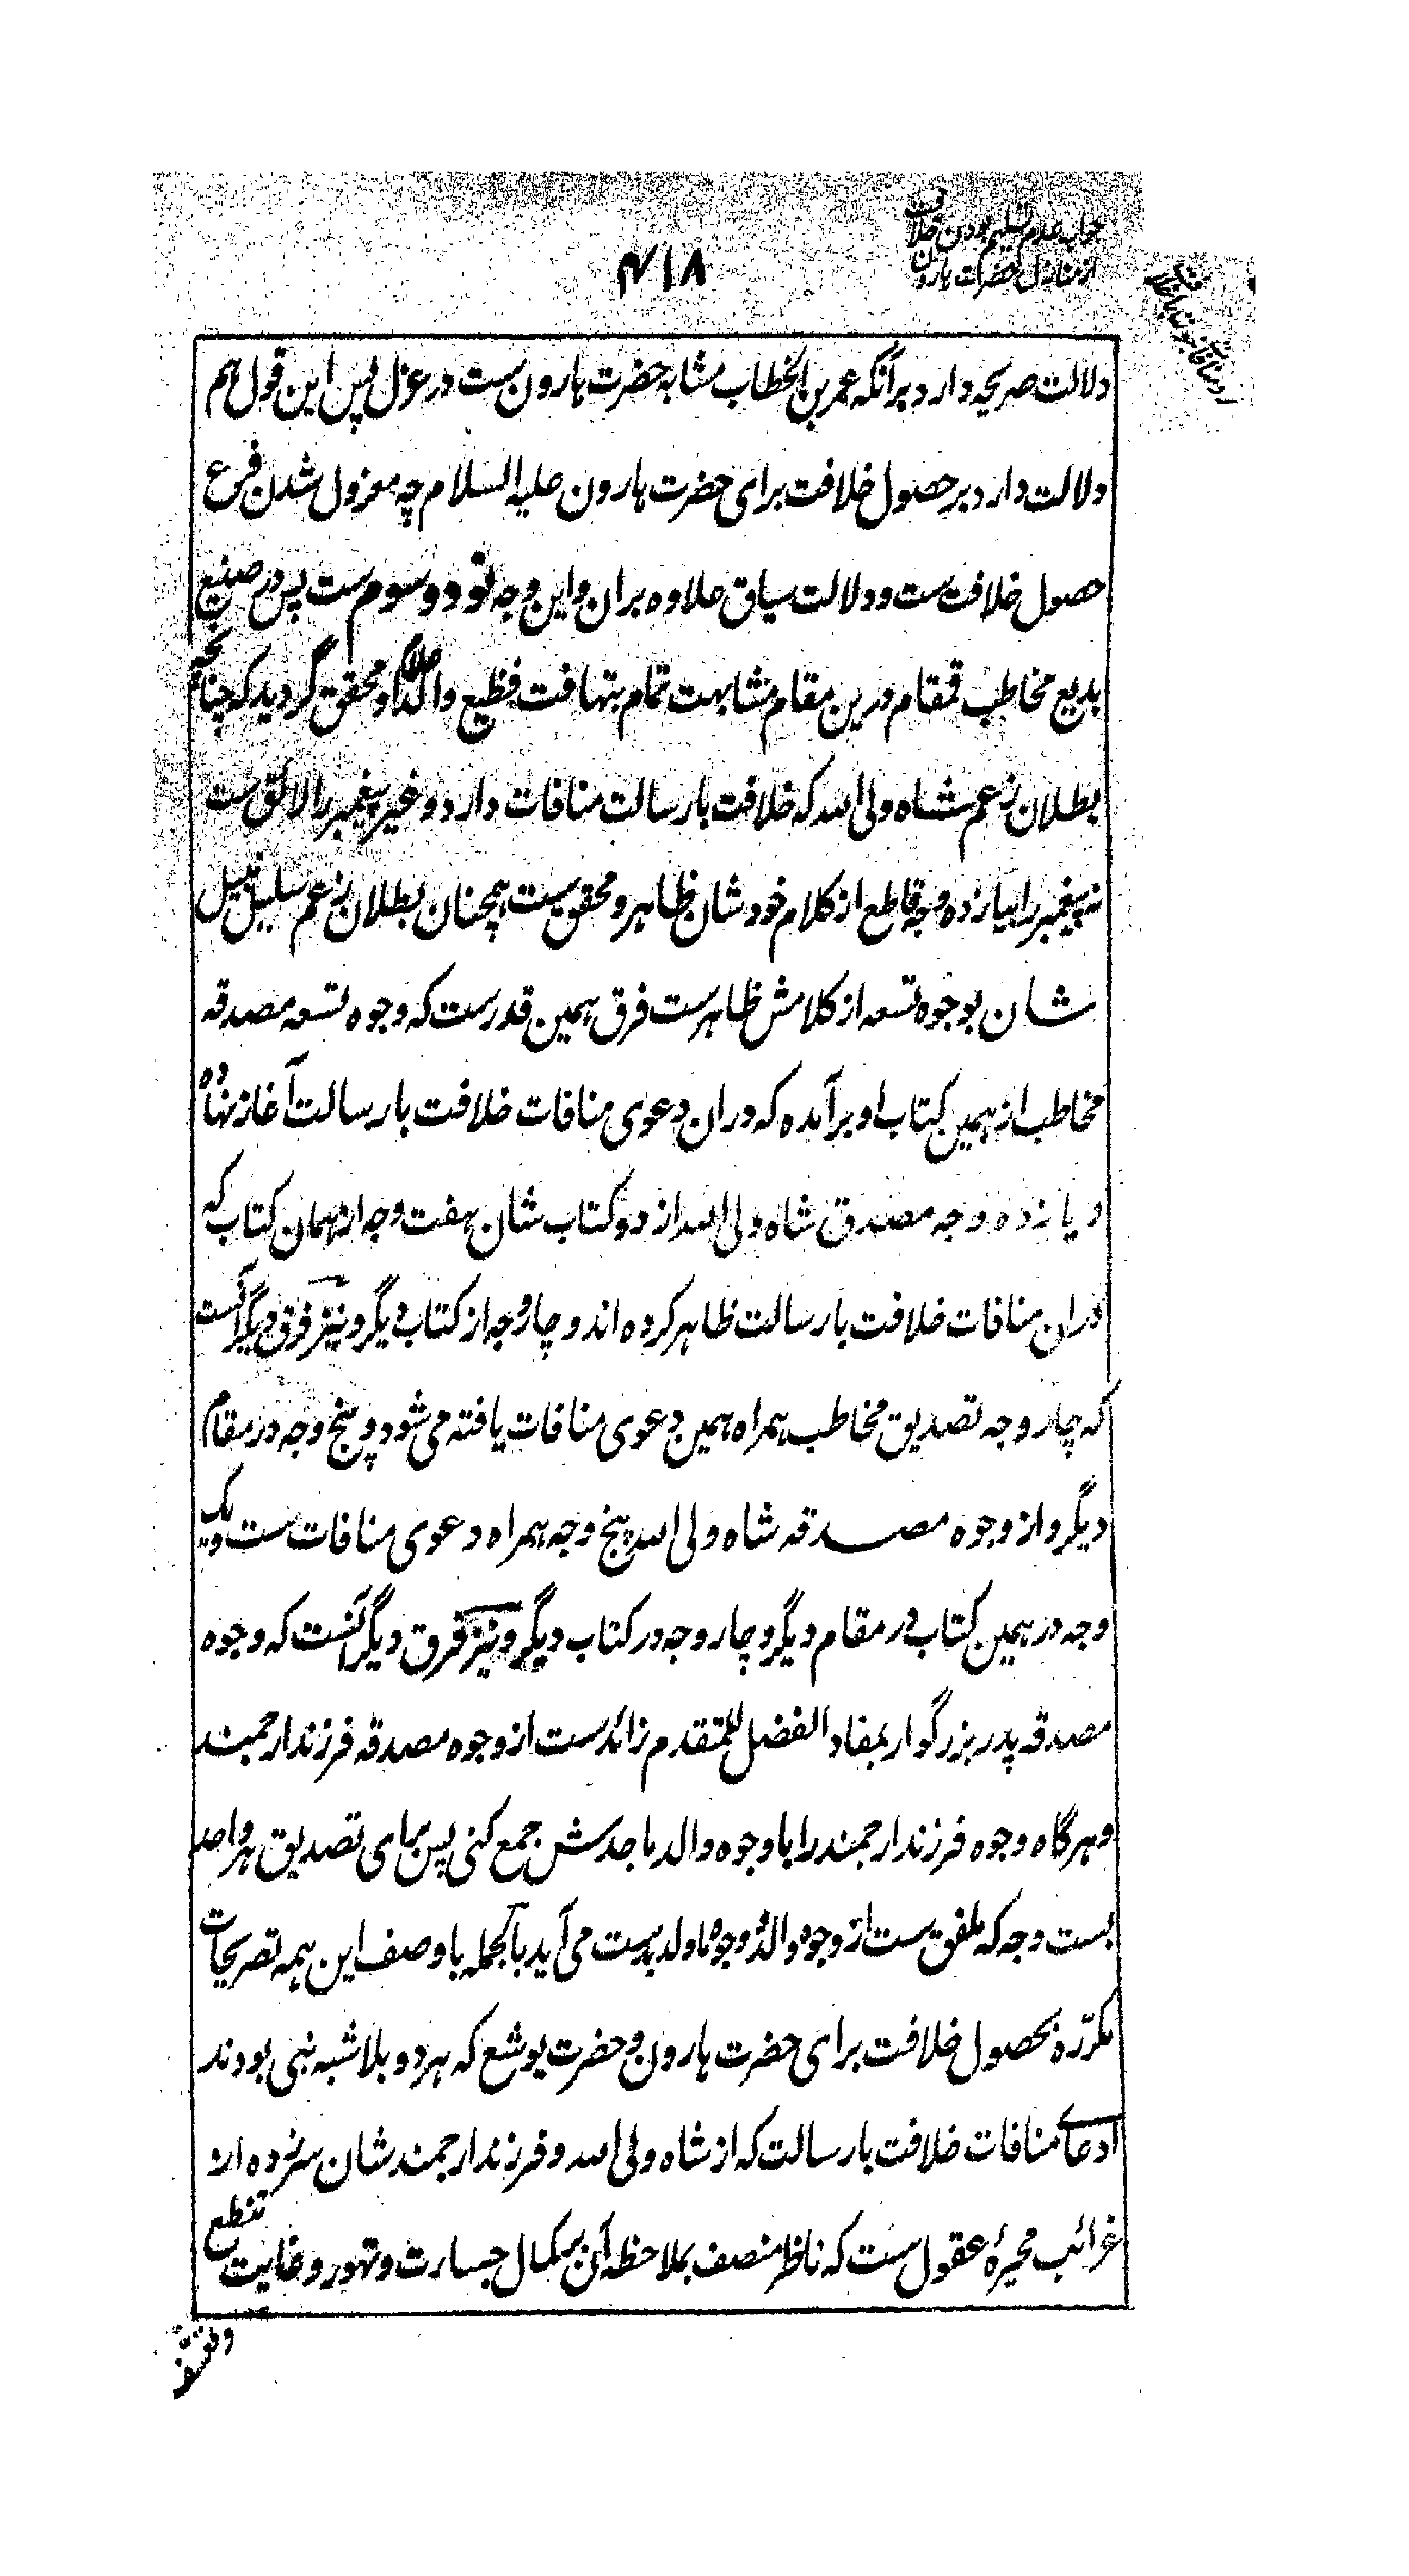 جواب عدم تسلیم بودن خلافت
از منازل حضرت هارون
۴۱۸
دلالت صریحه دارد بر آنکه عمر بن الخطاب مشابه حضرت هارون ست در عزل پس این قول هم
دلالت دارد بر حصول خلافت برای حضرت هارون علیه السلام چه معزول شدن فرع
حصول خلافت ست و دلالت سیاق علاوه بران و این وجه نود و سوم ست پس در صنیع
بدیع مخاطب قمقام درین مقام مشابهت تمام بتهافت فظیع والد او محقق گردید که چنانچه
بطلان زعم شاه ولی الله که خلافت با رسالت منافات دارد و غیر پیغمبر را لائق ست
نه پیغمبر را بیازده وجه قاطع از کلام خود شان ظاهر و محقق ست همچنان بطلان زعم سلیل نبیل
شان بوجوه تسعه از کلامش ظاهر ست فرق همین قدر ست که وجوه تسعه مصدقه
مخاطب از همین کتاب او برآمده که دران دعوی منافات خلافت با رسالت آغاز نهاده
و یازده وجه مصدق شاه ولی الله از دو کتاب شان هفت وجه از همان کتاب که
دران منافات خلافت با رسالت ظاهر کرده اند و چار وجه از کتاب دیگر و نیز فرق دیگر آنست
که چار وجه تصدیق مخاطب همراه همین دعوی منافات یافته می شود و پنج وجه در مقام
دیگر و از وجوه مصدقه شاه ولی الله پنج وجه همراه دعوی منافات ست و یک
وجه در همین کتاب در مقام دیگر و چار وجه در کتاب دیگر و نیز فرق دیگر آنست که وجوه
مصدقه پدر بزرگوار بمفاد الفضل للمتقدم زائد ست از وجوه مصدقه فرزند ارجمند
و هرگاه وجوه فرزند ارجمند را با وجوه والد ماجدش جمع کنی پس برای تصدیق هر واحد
بست وجه که ملفق ست از وجوه والد و وجوه ما ولد بدست می آید بالجمله با وصف این همه تصریحات
مکرّره بحصول خلافت برای حضرت هارون و حضرت یوشع که هر دو بلا شبه نبی بودند
ادعای منافات خلافت با رسالت که از شاه ولی الله و فرزند ارجمند شان سرزده از
غرائب محیرۀ عقول ست که ناظر منصف بملاحظه آن بکمال جسارت و تهور و غایت تنطع